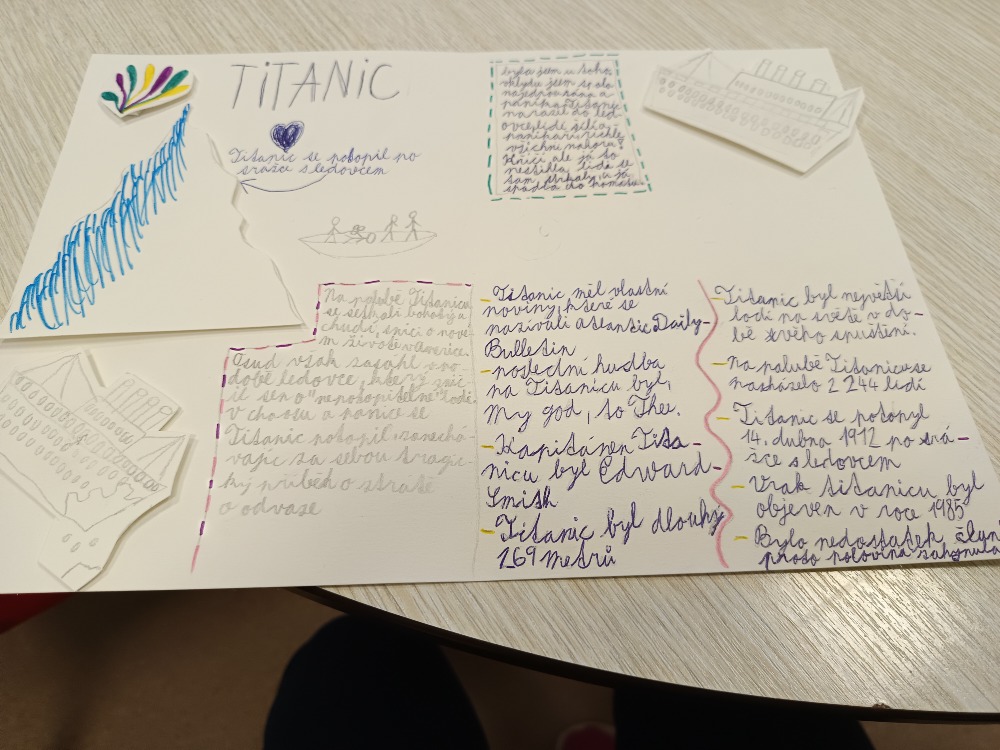 TITANIC
Titanic se potopil po
srážce s ledovcem
byla jsem u toho
najednou rána a
panika Titanic
narazil do led-
ovce, lidé šílía-
panikaří, rychle
všichni nahoru!
Křičí ale já to
nestihla, lidé se
tam strkaly a já
spadla do
Na palubě Titanicu
se setkali boháči a
chudí, snící o nové-
m životě v Americe.
Osud však zasáhl v po-
době ledovce, který zni-
il sen o "nepotopitelné" lodi
v chaosu a panice se
Titanic potopil, zanechá-
vajíc za sebou tragic-
ký příběh o ztrátě
o odvaze
- Titanic měl vlastní
noviny, které se
nazívali Atlantic Daily-
Bulletin
- poslední hudba
na Titanicu byl,
My god, to Thee.
- Kapitánem Tita-
nicu byl Edward-
Smith
- Titanic byl dlouhý
269 metrů
- Titanic byl největší
lodí na světě v do-
bě svého spuštění.
- Na palubě Titanicu se
nacházelo 2 244 lidí
- Titanic se potopyl
14. dubna 1912 po srá-
žce s ledovcem
- Vrak titanicu byl
objeven v roce 1985
- Bylo nedostatek člun
proto polovina zahynula